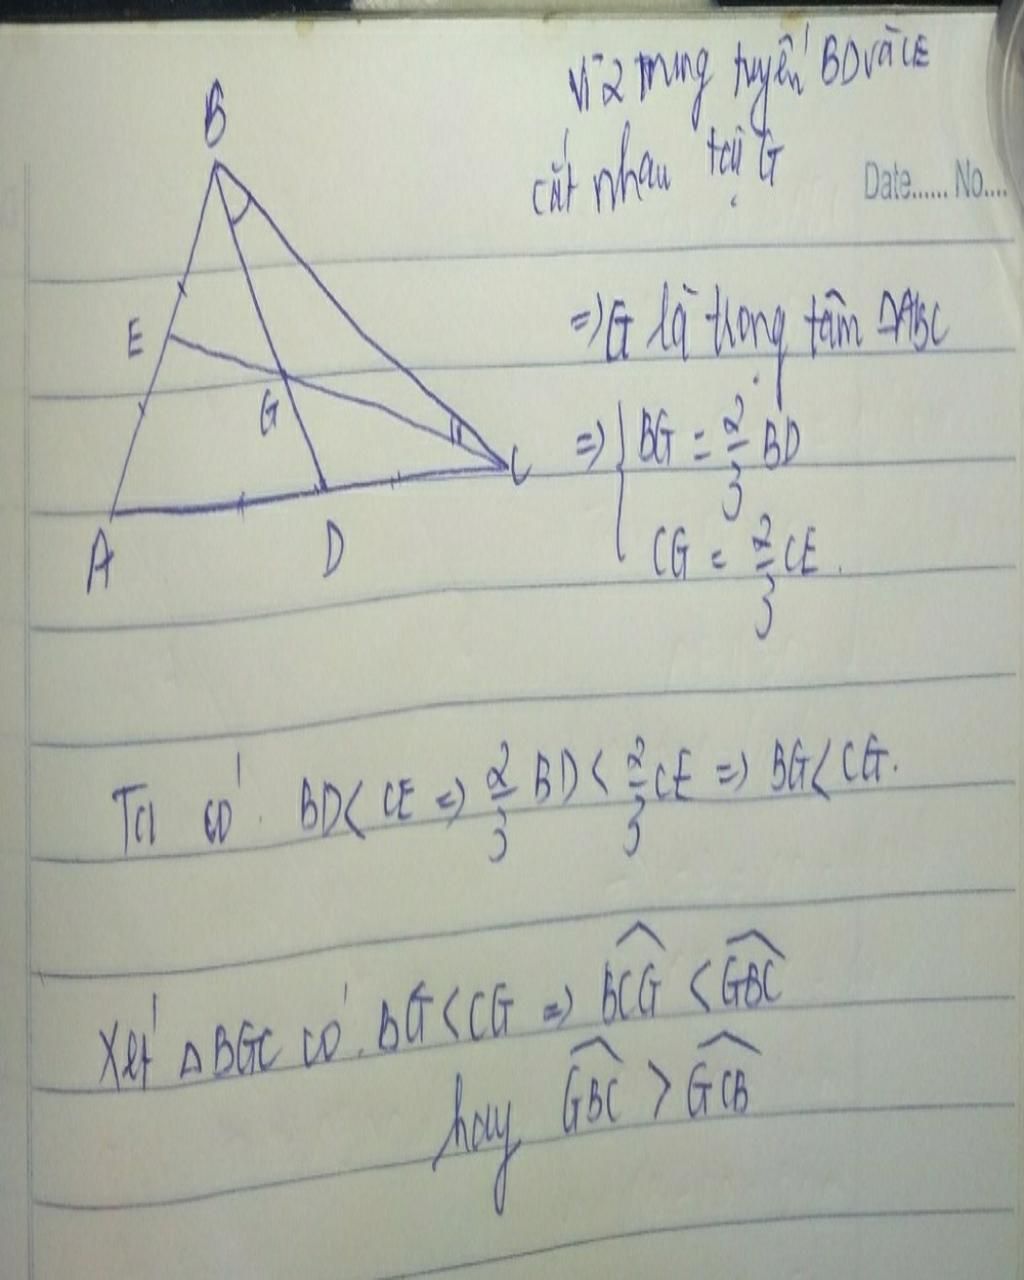 Vì 2 trung tuyến BD và CE
cắt nhau tại G
Date...... No....
B
E
G
C
A
D
=> G là trọng tâm ΔABC
=> { BG = 2/3 BD
CG = 2/3 CE.
Ta có: BD < CE => 2/3 BD < 2/3 CE => BG < CG.
Xét ΔBGC có: BG < CG => \widehat{BCG} < \widehat{GBC}
hay \widehat{GBC} > \widehat{GCB}